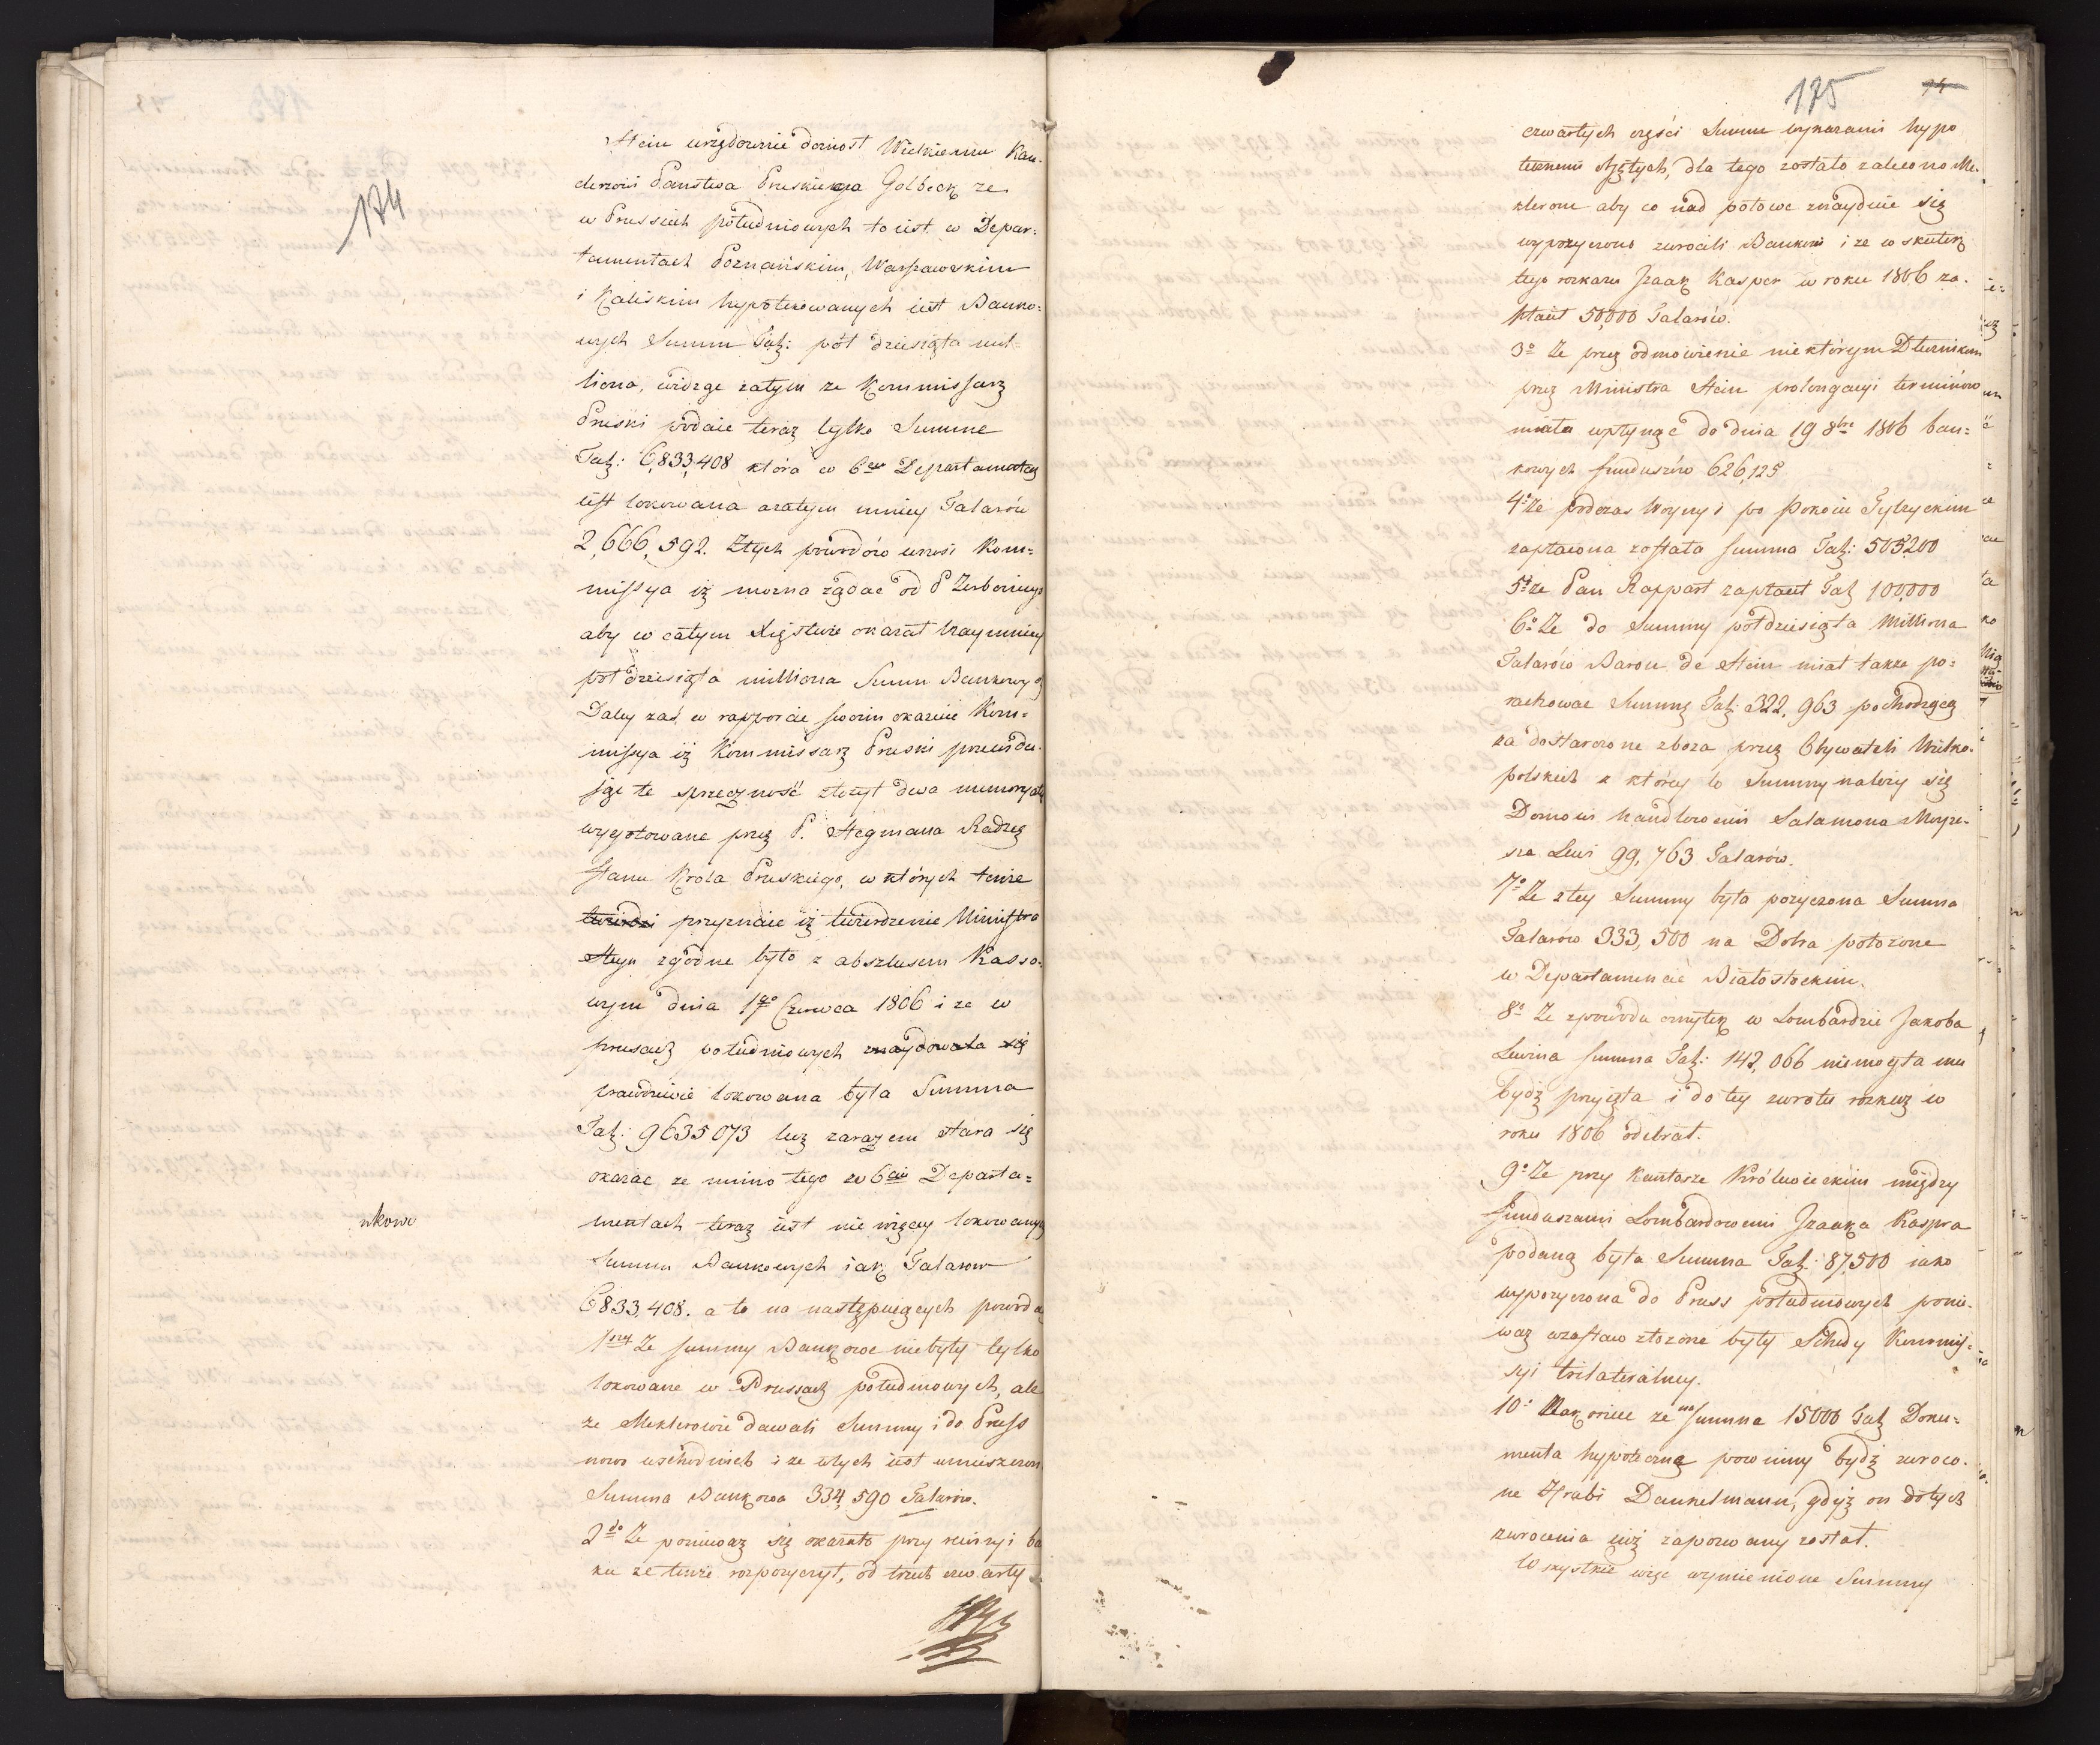 174
Stein urzędownie doniosł Wielkiemu Kan-
clerzowi Państwa Pruskiego Golbeck ze
w Prussiech południowych to iest w Depar:
tamentach Poznańskim, Warszawskim
i Kaliskim hypotekowanych iest Banko:
wych Summ Tal: pół dziesiąta mil-
liona, widząc zatym ze Kommissarz
Pruski podaie teraz tylko Summe
Tal: 6,833,408 która w 6ciu Departamentach
iest lokowana azatym mniey Talarów
2,666,592. Ztych powodów wnosi Kom=
missya iż mozna żądać od P Zerboniego
aby w całym Xięstwie okazał naymniey
pół dziesiąta milliona Summ Bankowych
Daley zaś w rapporcie swoim okazuie Kom=
missya iż Kommissarz Pruski przewidu-
jąc te sprzeczność złożył dwa memoryały
wygotowane przez P. Stegmana Radzcę
Stanu Krola Pruskiego, w których tenże
twierdzi przyznaie iż twierdzenie Ministra
Steyn zgodne było z abszlusem Kasso-
wym dnia 1go Czerwca 1806 i ze w
prusach południowych znaydowała się
prawdziwie lokowana była Summa
Tal: 9635073 lecz zarazem stara się
okazac ze mimo tego w 6ciu Departa=
mentach teraz iest nie więcey lokowanych
nkowe
Summ Bankowych iak Talarow
6833,408. a to na następuiących powodach
1mo Ze summy Bankowe niebyły tylko
lokowane w Prussach południowych, ale
ze Meklerowie dawali Summy i do Pruss
nowo wschodnich i ze wtych iest umieszczona
Summa Bankowa 334,590 Talarów.
2do Ze poniewaz się okazało przy rewizyi ba
ku ze tenże rozpozyczył, od trzech czwartych
175
74
czwartych części Summ wykazami hypo
tecznemi , dla tego zostało zalecono Me-
klerom aby co nad połowe znayduie się
wypożyczono zwrocili Bankowi i ze w skutek
tego rozkazu Izaak Kasper w roku 1806 za-
płacił 50,000 Talarów.
3o Ze przez odmowienie niektórym Dłuznikom
przez Ministra Stein prolongacyi terminów
miała wpłynąć do dnia 19 8bre 1806 ban=
kowych funduszów 626,125
4o Ze podczas Woyny i po Pokoiu Tylzyckim
zapłacona została summa Tal: 505,200
5o ze Pan Rappart zapłacił Tal 100,000
6o Ze do Summy półdziesiąta Milliona
Talarów Baron de Stein miał także po=
rachować Summę Tal: 322,963 pochodzącą
za dostarczone zboza przez Obywateli Wielko-
polskich z którey to Summy należy się
Domowi handlowemu Salamona Moyze-
sza Lewi 99,763 Talarów.
7o Ze ztey Summy była pożyczona Summa
Talarów 333,500 na Dobra położone
w Departamencie Białostockim.
8o Ze zpowodu omyłek w Lombardzie Jakoba
Lewina summa Tal: 142,066 niemogła mu
bydź przyięta i do tey zwrotu rozkaz w
roku 1806 odebrał.
9o Ze przy Kantorze Królewieckim między
funduszami Lombardowemi Izaaka Kaspra
podaną była Summa Tal: 87,500 iako
wypozyczona do Pruss południowych ponie-
waz wzastaw złozone były Schedy Kommis-
syi trilateralney.
10o Nakoniec ze na summe 15000 Tal Doku=
menta hypoteczne powinny bydź zwroco-
ne Hrabi Dankelmann, gdyż on dotych
zwrocenia iuż zapozwany został.
Wszystkie więc wymienione Summy